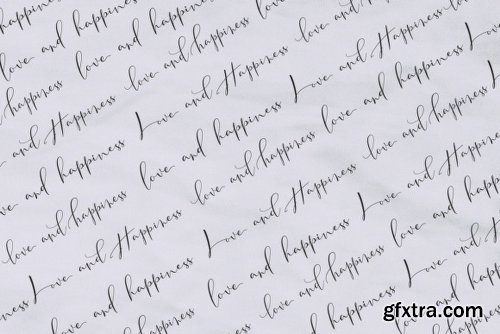 love and happiness love and happiness
happiness love and happiness love and happiness
and Happiness love and happiness love and happiness
love and happiness Love and Happiness love and happiness
love and happiness love and happiness Love and Happiness
Love and Happiness love and happiness love and happiness Love
love and happiness Love and Happiness love and happiness
love and happiness Love and Happiness
love and happiness love and happiness
Love and Happiness
gfxtra.com